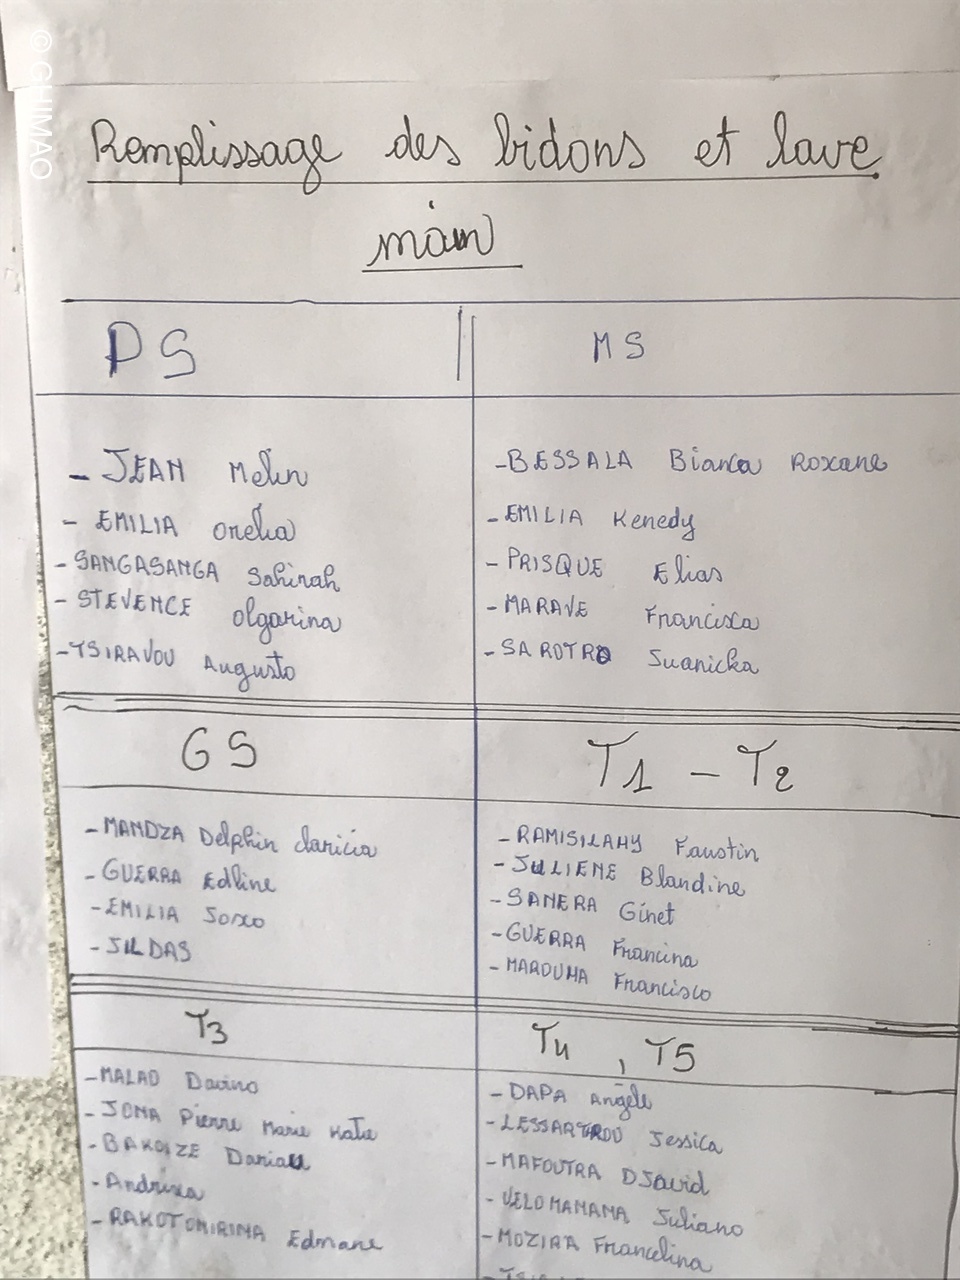 © GHIMAO
Remplissage des bidons et lave
main
PS
- JEAN Melin
- EMILIA Orelia
- SANGASANGA Sahinah
- STEVENCE Olgarina
- TSIRAVOU Augusto
MS
- BESSALA Bianca Roxane
- EMILIA Kenedy
- PRISQUE Elias
- MARAVE Francisca
- SAROTRO Suanicka
GS
- MANDZA Delphin
- GUERRA Edline
- EMILIA
- SILDAS
T1 - T2
- RAMISILAHY Faustin
- JULIENE Blandine
- SANERA Ginet
- GUERRA Francina
- MAROUHA Francisco
T3
- MALAO Davino
- JOMA Pierre Marie Katie
- BAKOIZE
- Andrixa
- RAKOTONIRINA Edmane
T4 , T5
- DAPA Angèle
- Jessica
- MAFOUTRA DJavid
- VELOMANANA Juliano
- MOZIRA Francelina